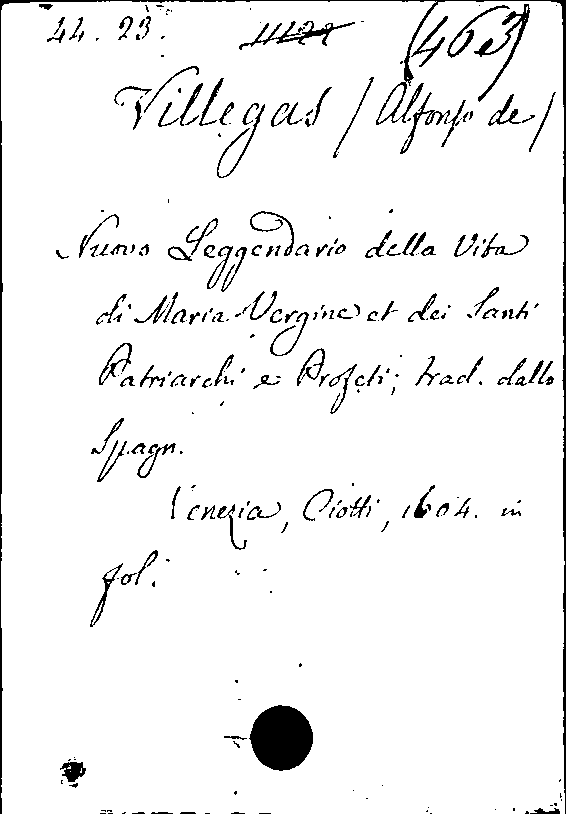 44. 23. (4633)
Villegas / Alfonso de /
Nuovo Leggendario della Vita
di Maria Vergine et dei Santi
Patriarchi e Profeti; trad. dallo
Spagn.
Venezia, Ciotti, 1604. in
fol.